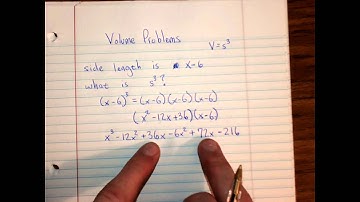 Volume Problems
V=s³
side length is x-6
what is s³?
(x-6)³ = (x-6)(x-6)(x-6)
(x²-12x+36)(x-6)
x³-12x²+36x-6x²+72x-216